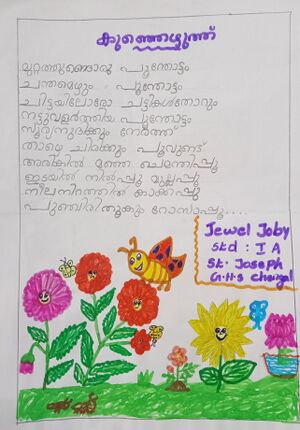 കുഞ്ഞെഴുത്ത്
മുറ്റത്തുണ്ടൊരു പൂന്തോട്ടം
ചന്തമെഴും പൂന്തോട്ടം
ചിട്ടയിലോരോ ചട്ടികൾതോറും
നട്ടുവളർത്തിയ പൂന്തോട്ടം
സൂര്യനുദിക്കും നേരത്ത്
താഴെ ചിരിക്കും പൂവുണ്ട്
അരികിൽ മഞ്ഞ ചെമന്തിപ്പൂ
ഇടയിൽ നിൽപ്പൂ മുല്ലപ്പൂ
നീലനിറത്തിൽ കാക്കപ്പൂ
പുഞ്ചിരിതൂകും റോസാപ്പൂ....
Jewel Joby
Std : I A
St. Joseph
G.H.S Chengal